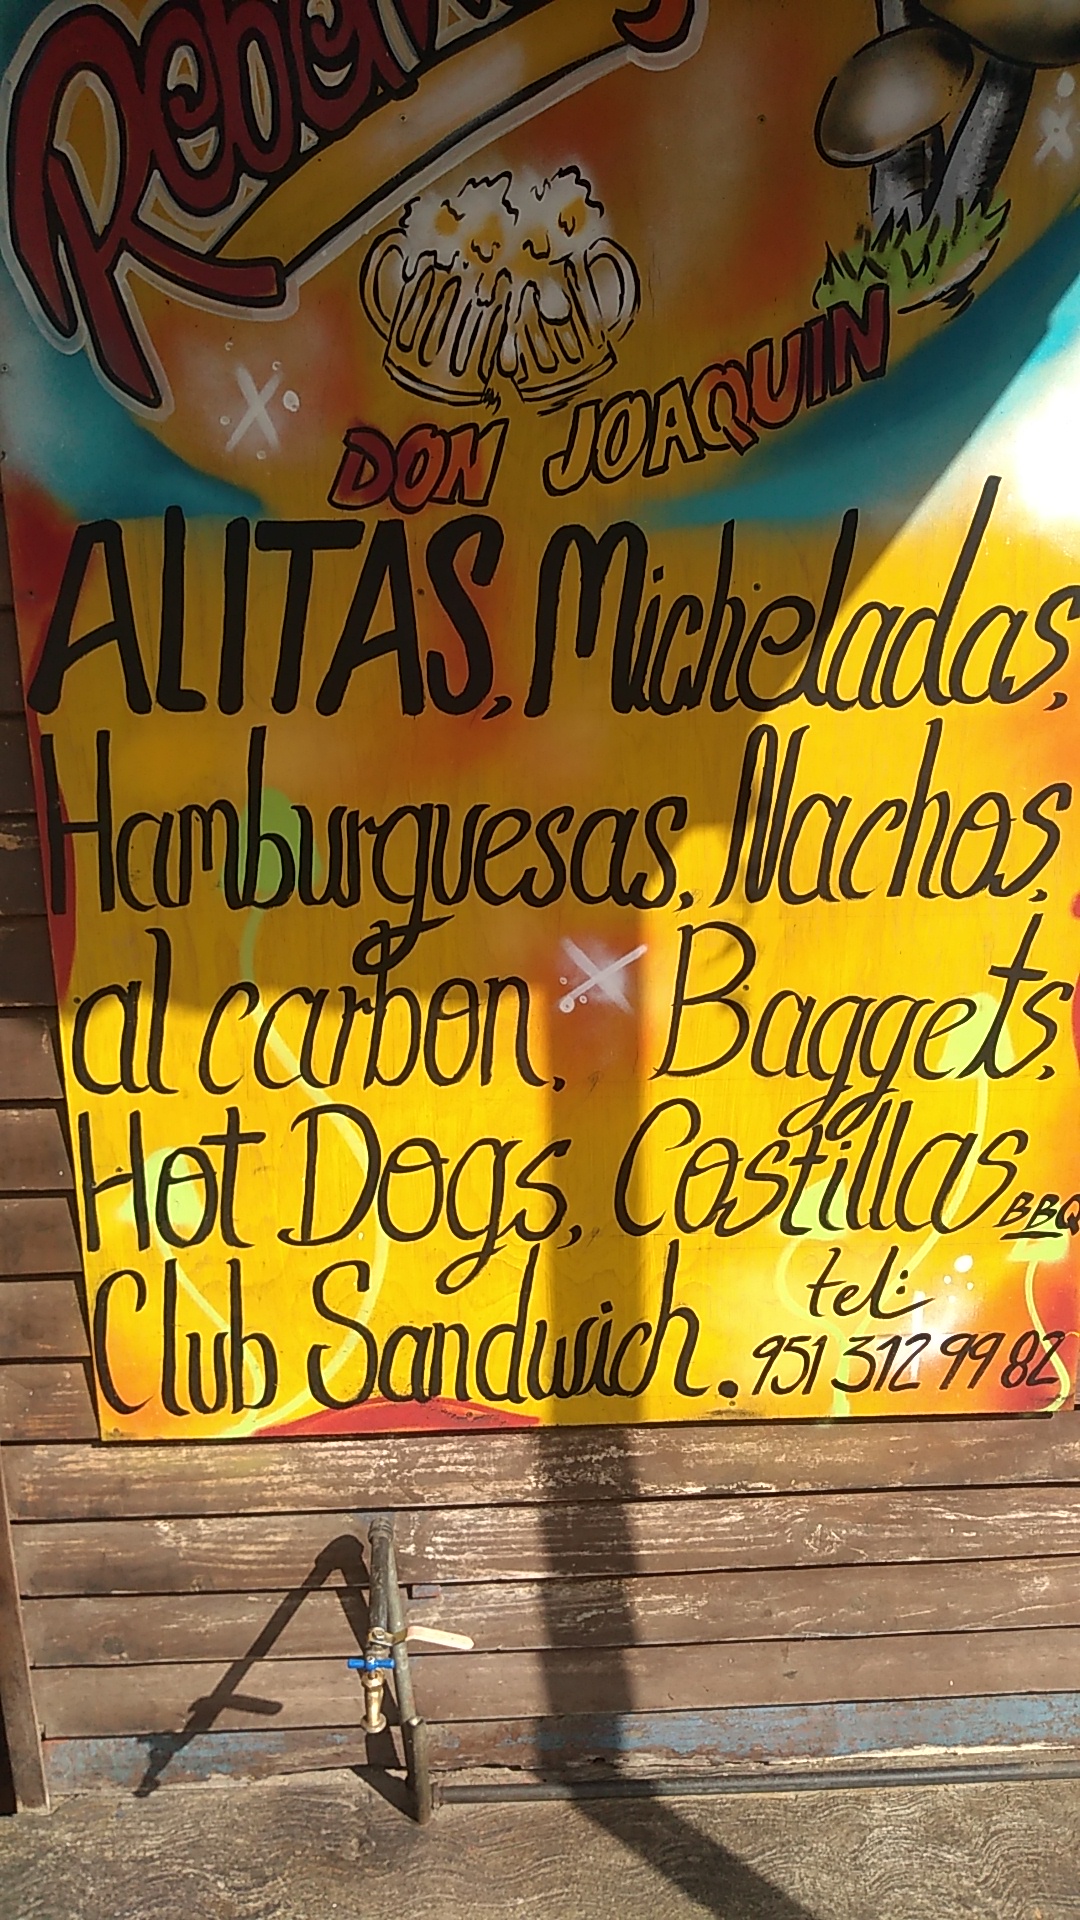 DON JOAQUIN
ALITAS, Micheladas,
Hamburguesas, Nachos,
al carbon, Baggets,
Hot Dogs, Costillas BBQ
Club Sandwich. tel:
951 312 99 82